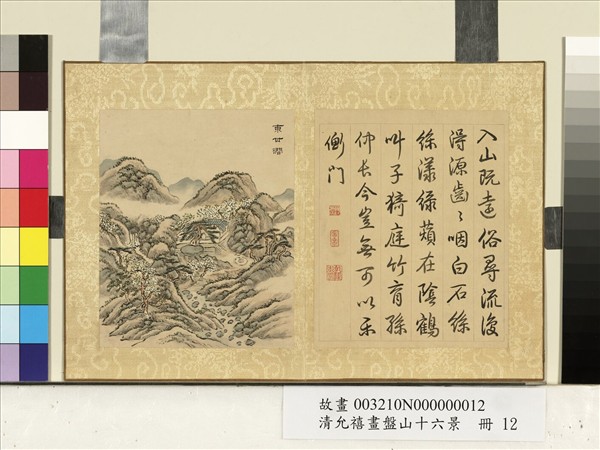 東甘澗
入山既遠俗尋流復
得源齒〻咽白石絲
絲漾綠蘋在陰鶴
叫子猗庭竹育孫
仲长今豈無可以樂
衡门
故畫 003210N000000012
清允禧畫盤山十六景 冊 12